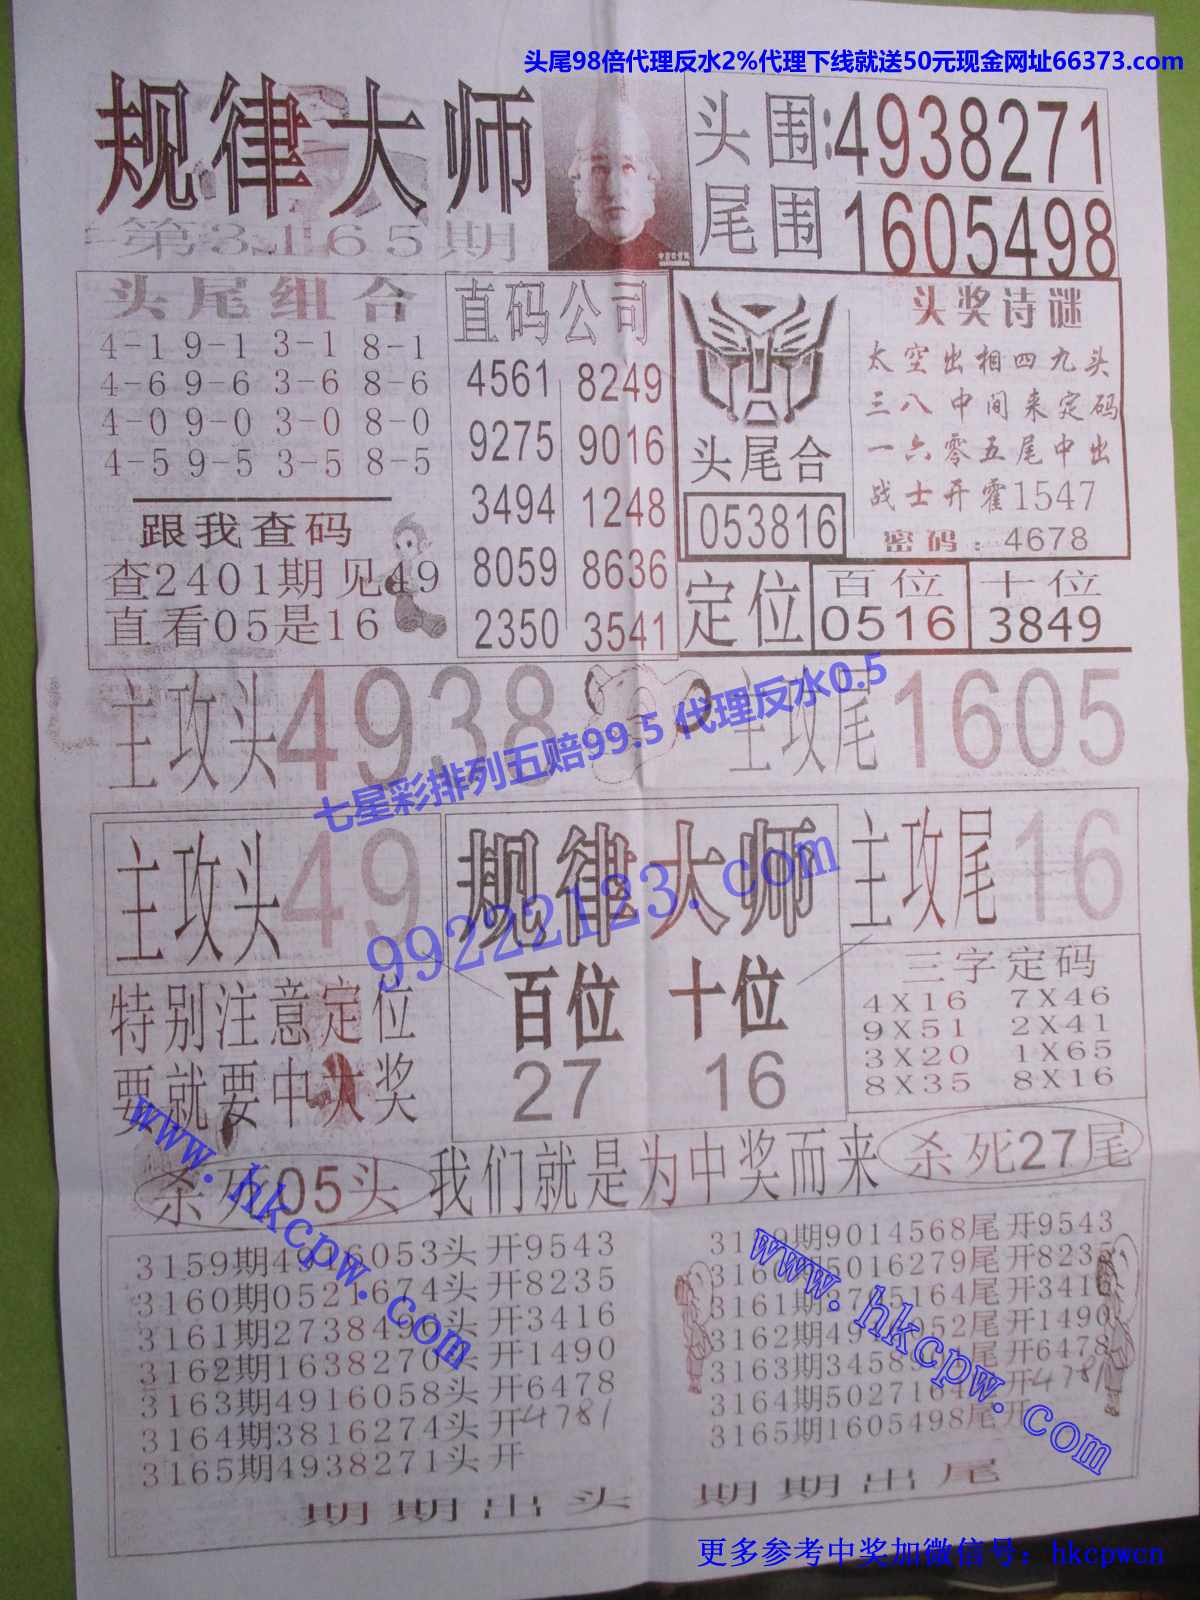 头尾98倍代理反水2%代理下线就送50元现金网址66373.com
规律大师
第3165期
头围:4938271
尾围 1605498
头尾组合
4-1 9-1 3-1 8-1
4-6 9-6 3-6 8-6
4-0 9-0 3-0 8-0
4-5 9-5 3-5 8-5
跟我查码
查2401期见49
直看05是16
直码公司
4561 8249
9275 9016
3494 1248
8059 8636
2350 3541
头尾合
053816
头奖诗谜
太空出相四九头
三八中间来定码
一六零五尾中出
战士开霍1547
密码:4678
定位
百位
0516
十位
3849
主攻头4938
主攻尾1605
七星彩排列五赔99.5 代理反水0.5
主攻头49
规律大师
主攻尾16
99222123.com
百位 十位
27 16
特别注意定位
要就要中大奖
三字定码
4X16 7X46
9X51 2X41
3X20 1X65
8X35 8X16
杀死05头
我们就是为中奖而来
杀死27尾
www.hkcpw.com
www.hkcpw.com
3159期4916053头开9543
3160期0521674头开8235
3161期273849头开3416
3162期1638270头开1490
3163期4916058头开6478
3164期3816274头开4781
3165期4938271头开
3159期9014568尾开9543
3160期5016279尾开8235
3161期3785164尾开3416
3162期49 052尾开1490
3163期34589 尾开6478
3164期5027164尾开4781
3165期1605498尾开
期期出头 期期出尾
更多参考中奖加微信号：hkcpwcn